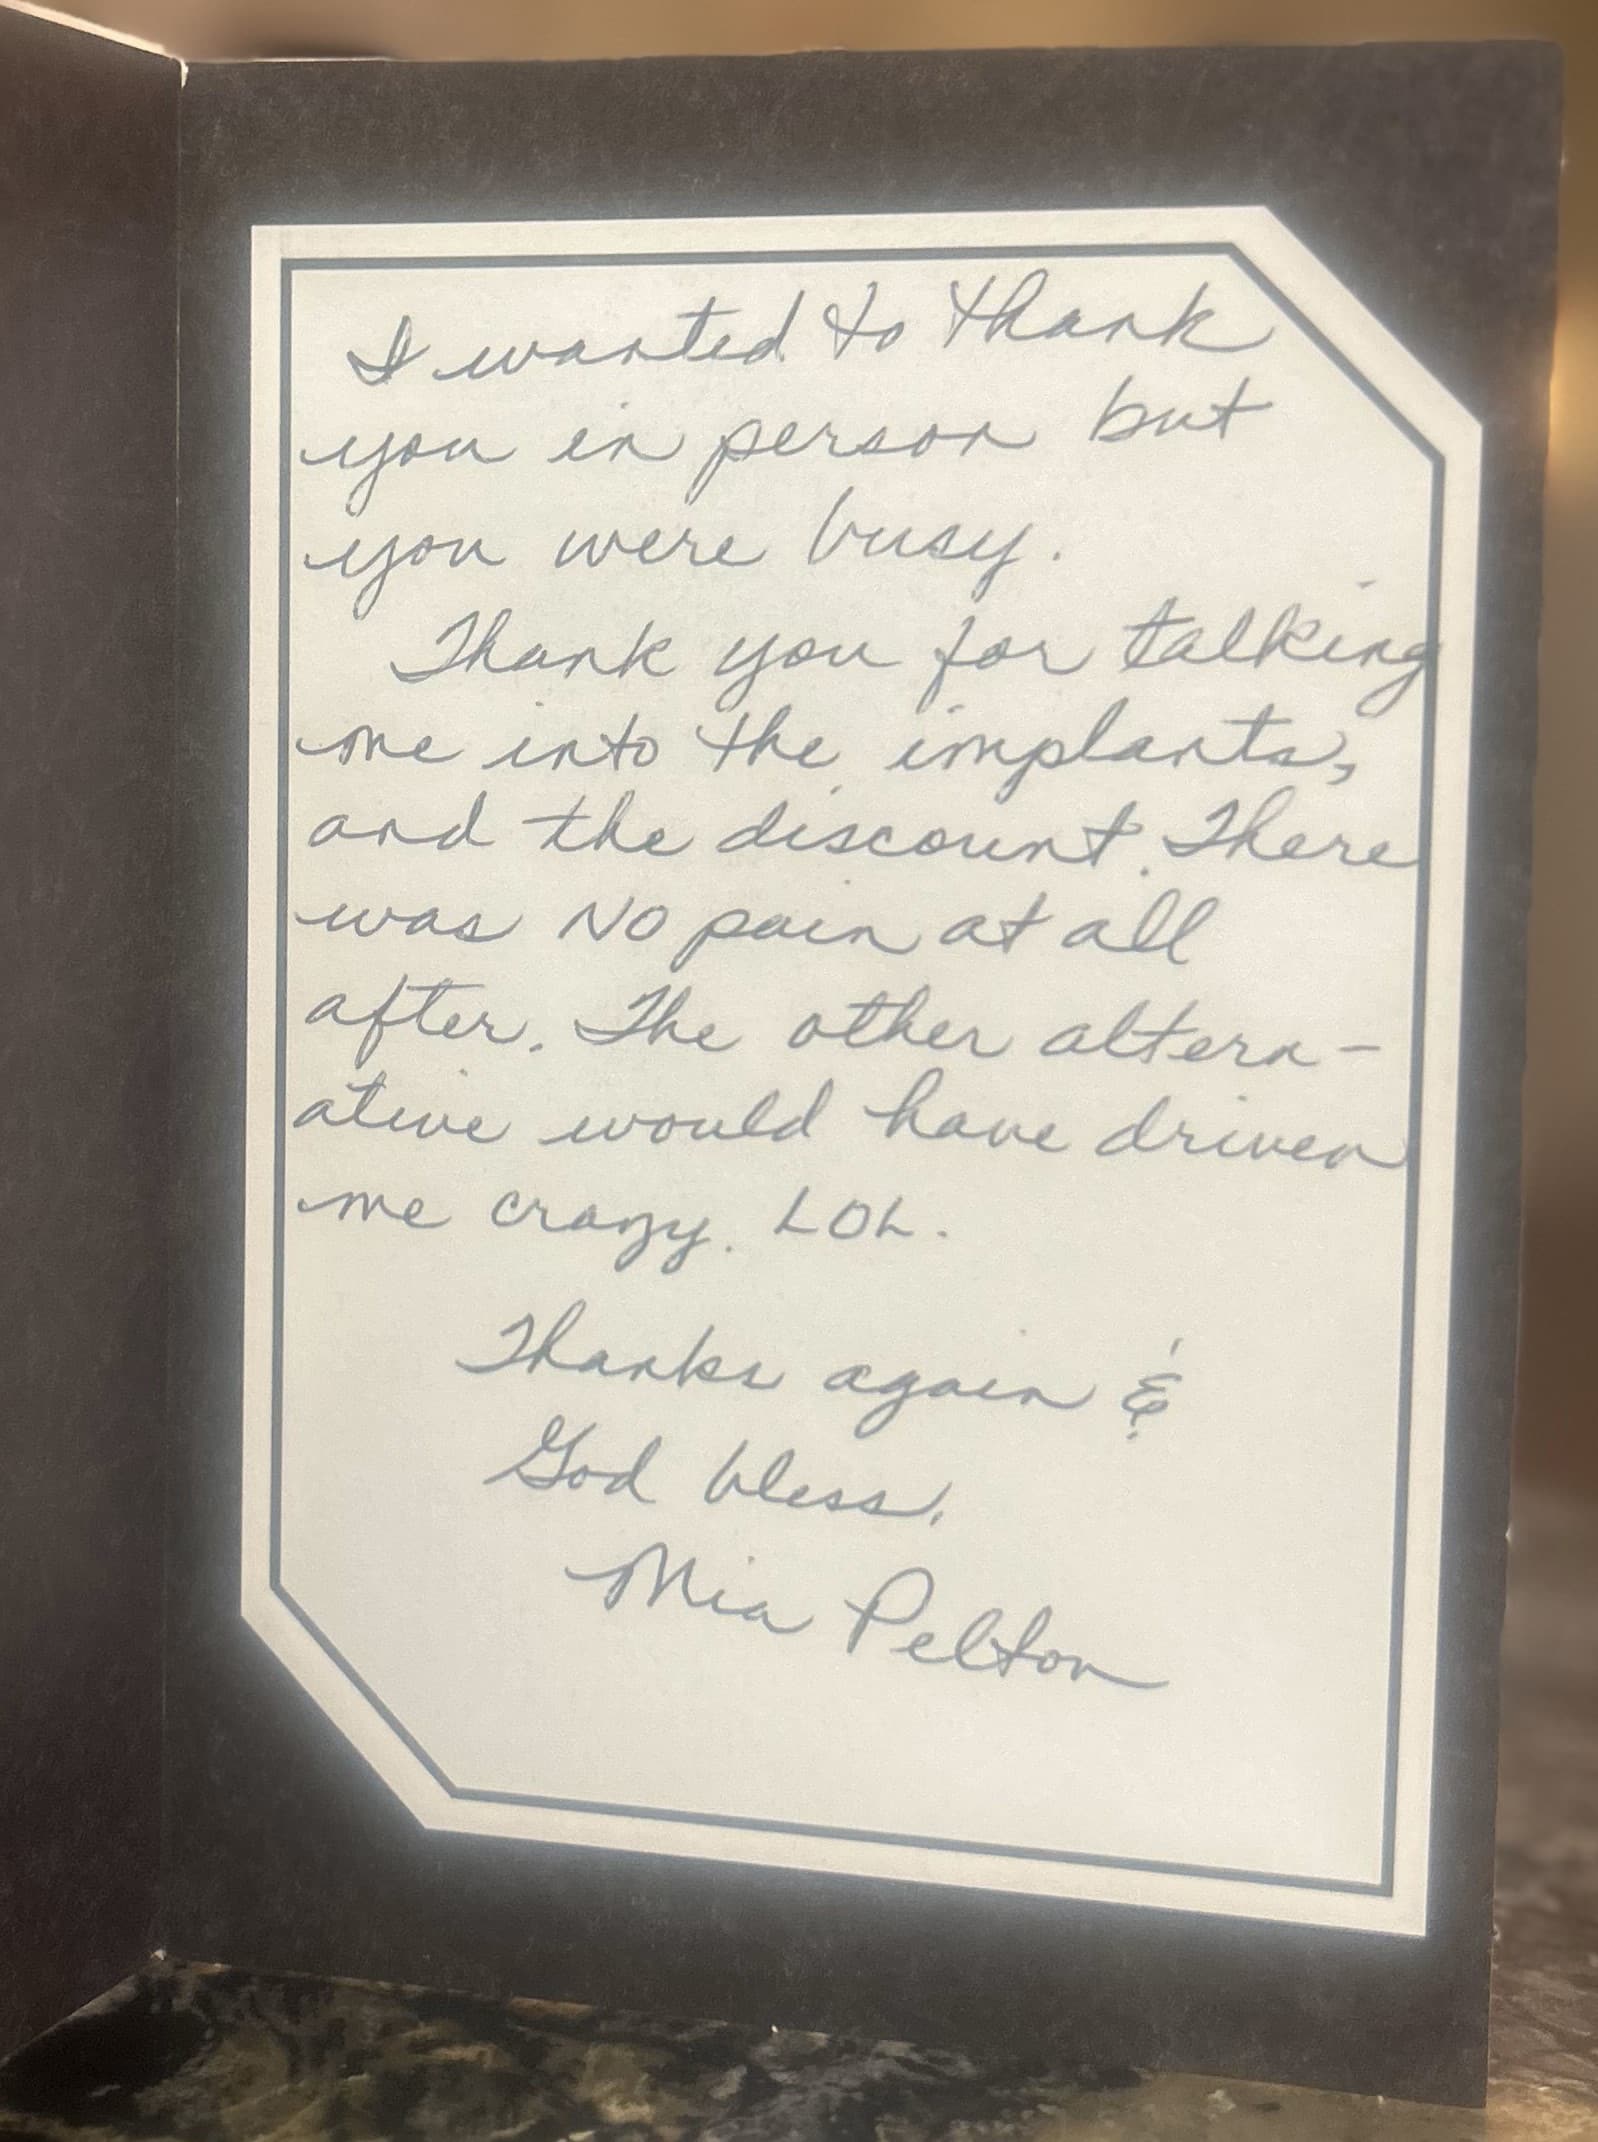 I wanted to thank
you in person but
you were busy.
Thank you for talking
me into the implants,
and the discount. There
was NO pain at all
after. The other altern-
ative would have driven
me crazy. LOL.
Thanks again &
God bless.
Mia Pelton